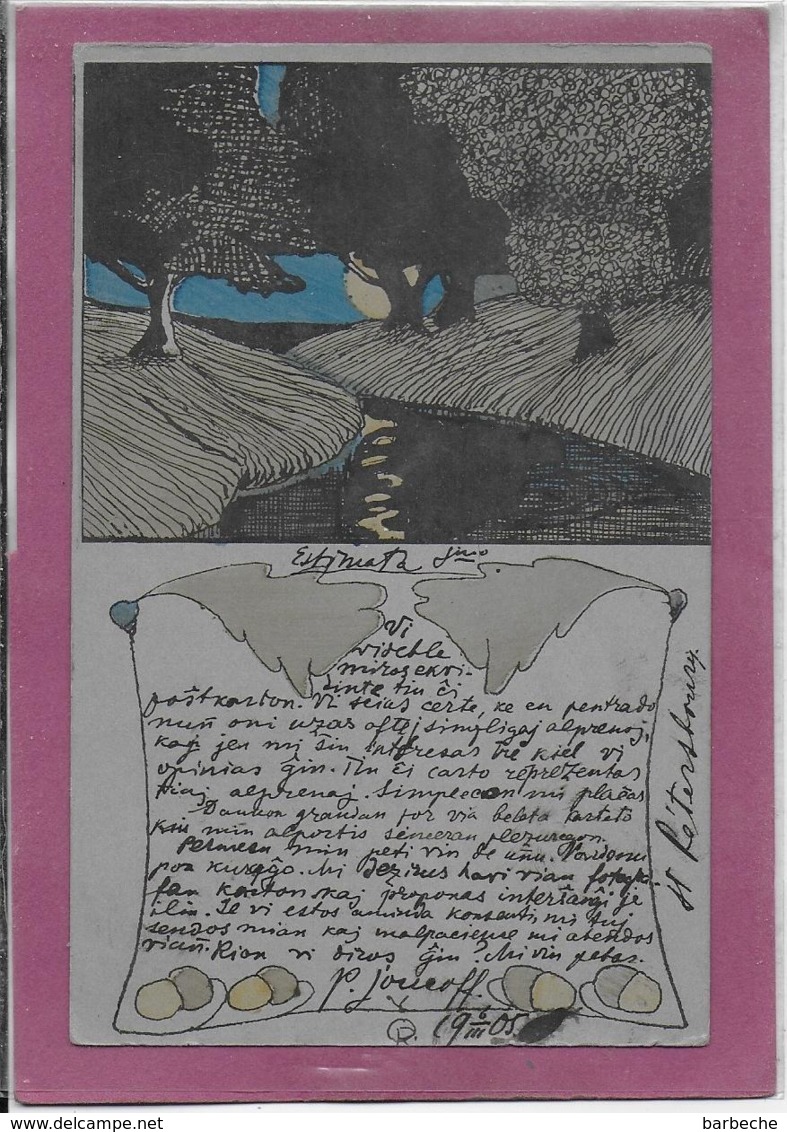 Estimata Sino
Vi
videble
miros ekvi-
dinte tiu ĉi
poŝtkarton. Vi scias certe, ke en pentrado
nun oni uzas oftej simpligaj alprenoj,
kaj jen mi ŝin interesas tre kiel vi
opinias ĝin. Tiu ĉi carto reprezentas
tiaj alprenaj. Simplecon mi plaĉas
Dankon grandan for via beleta kartato
kiu min alportis senceran plezuregon.
Permesu min peti vin de unu.
pon kuraĝo. Mi dezirus havi vian
kartonskaj proponas interŝanĝi je
ilin. Se vi estos aminda konsenti mi tuj
sendos mian kaj malpaciense mi atendos
vian. Kion vi diros ĝin? Mi vin petas.
P.
19 6/III 05.
St Pétersbourg.
www.delcampe.net
barbeche